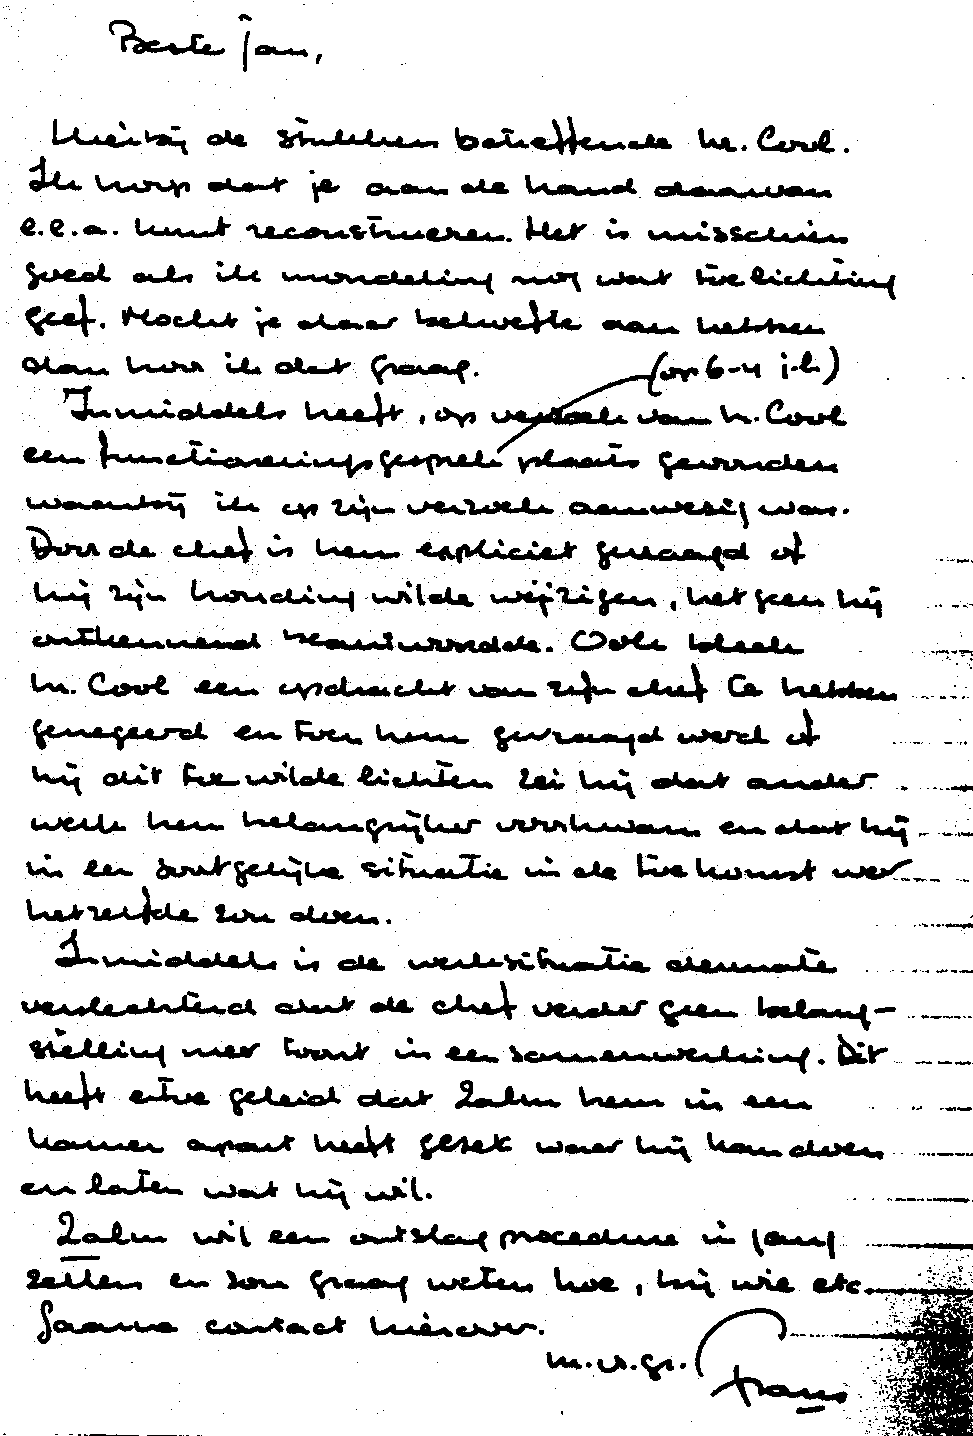 Beste Jan,
Hierbij de stukken betreffende hr. Cool.
Ik hoop dat je aan de hand daarvan
e.e.a. kunt reconstrueren. Het is misschien
goed als ik mondeling nog wat toelichting
geef. Mocht je daar behoefte aan hebben
dan hoor ik dat graag.
(op 6-4 j.l.)
Inmiddels heeft, op verzoek van h. Cool
een functioneringsgesprek plaats gevonden
waarbij ik op zijn verzoek aanwezig was.
Door de chef is hem expliciet gevraagd of
hij zijn houding wilde wijzigen, hetgeen hij
ontkennend beantwoordde. Ook bleek
hr. Cool een opdracht van zijn chef te hebben
genegeerd en toen hem gevraagd werd of
hij dit toe wilde lichten zei hij dat ander
werk hem belangrijker voorkwam en dat hij
in een soortgelijke situatie in de toekomst weer
hetzelfde zou doen.
Inmiddels is de werksituatie dermate
verslechterd dat de chef verder geen belang-
stelling meer toont in een samenwerking. Dit
heeft ertoe geleid dat Zalm hem in een
kamer apart heeft gezet waar hij kan doen
en laten wat hij wil.
Zalm wil een ontslagprocedure in gang
zetten en zou graag weten hoe, bij wie etc.
Gaarne contact hierover.
m.v.gr. Frans